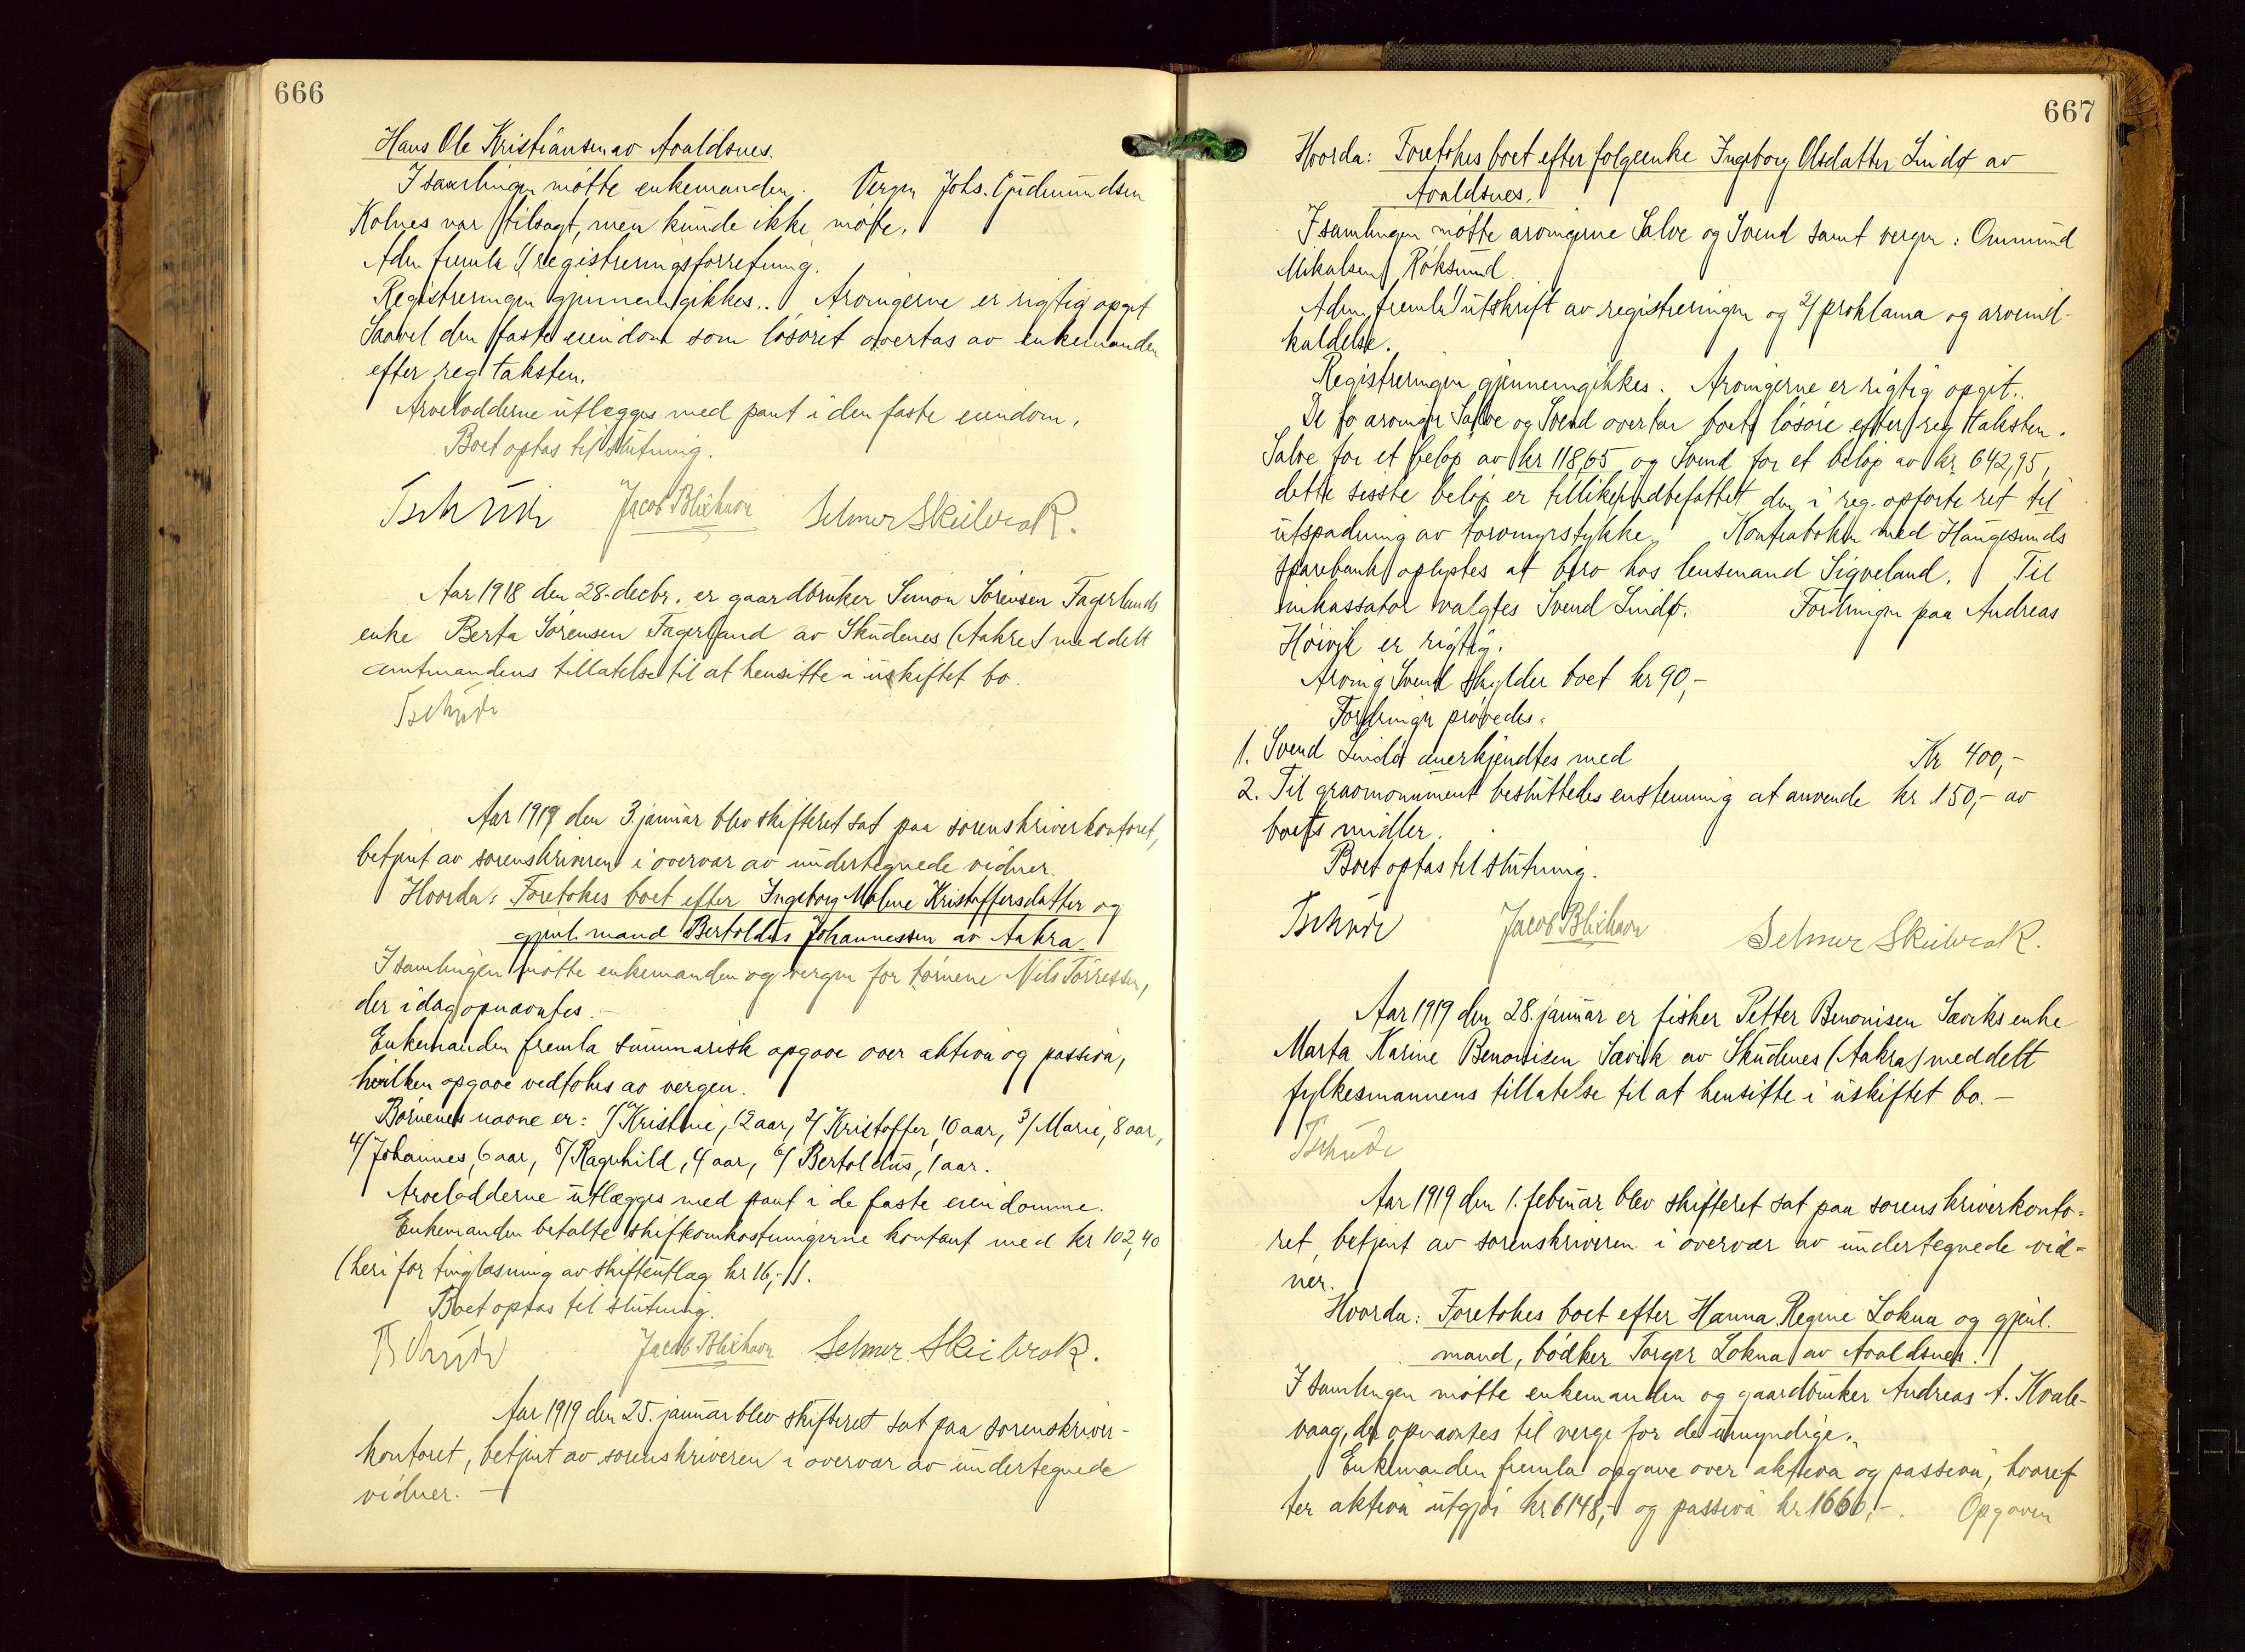 666
Hans Ole Kristiansen av Avaldsnes.
I samlingen møtte enkemanden. Vergen Johs. Gudmundsen
Kolnes var tilsagt, men kunde ikke møte.
Adm. fremla 1/ registreringsforretning.
Registreringen gjennemgikkes. Arvingerne er rigtig opgit
Saavel den faste eiendom som løsøret overtas av enkemanden
efter reg. taksten.
Arvelodderne utlægges med pant i den faste eiendom.
Boet optas til slutning.
Tschudi Jacob Blixhavn Selmer Skeibrok.
Aar 1918 den 28. decbr. er gaardbruker Simon Sørensen Fagerlands
enke Berta Sørensen Fagerland av Skudenes (Aakre) meddelt
amtmandens tillatelse til at hensitte i uskiftet bo.
Tschudi
Aar 1919 den 3. januar blev skifteret sat paa sorenskriverkontoret,
betjent av sorenskriveren i overvær av undertegnede vidner.
Hvorda: Foretokes boet efter Ingeborg Malene Kristoffersdatter og
gjenl. mand Bertoldus Johannessen av Aakra.
I samlingen møtte enkemanden og vergen for børnene Nils Tørressen,
der idag opnævntes.
Enkemanden fremla summarisk opgave over aktiva og passiva,
hvilken opgave vedtokes av vergen.
Børnenes navne er: 1/ Kristine, 12 aar, 2/ Kristoffer, 10 aar, 3/ Marie, 8 aar,
4/ Johannes, 6 aar, 5/ Ragnhild, 4 aar, 6/ Bertoldus, 1 aar.
Arvelodderne utlægges med pant i de faste eiendomme.
Enkemanden betalte skifteomkostningerne kontant med kr 102,40
(heri for tinglæsning av skifteutlæg kr 16,-).
Boet optas til slutning.
Tschudi Jacob Blixhavn Selmer Skeibrok.
Aar 1919 den 25. januar blev skifteret sat paa sorenskriver-
kontoret, betjent av sorenskriveren i overvær av undertegnede
vidner. —
667
Hvorda: Foretokes boet efter folgeenke Ingeborg Olsdatter Lindø av
Avaldsnes.
I samlingen møtte arvingerne Salve og Svend samt vergen: Ommund
Mikalsen Røksund.
Adm. fremla 1/ utskrift av registreringen og 2/ proklama og arveind-
kaldelse.
Registreringen gjennemgikkes. Arvingerne er rigtig opgit.
De to arvinger Salve og Svend overtar boets løsøre efter reg. taksten.
Salve for et beløp av kr 118,65 og Svend for et beløp av kr 642,95,
dette sisste beløp er tillike indbefattet den i reg. opførte ret til
utspadning av torvmyrstykke. Kontraboken med Haugesunds
sparebank oplystes at bero hos lensmand Sigveland. Til
inkassator valgtes Svend Lindø. Fordringen paa Andreas
Høivik er rigtig.
Arving Svend skylder boet kr 90,-
Fordringer prøvedes:
1. Svend Lindø anerkjendtes med Kr 400,-
2. Til gravmonument besluttedes enstemmig at anvende kr 150,- av
boets midler.
Boet optas til slutning.
Tschudi Jacob Blixhavn Selmer Skeibrok.
Aar 1919 den 28. januar er fisker Petter Benonisen Sæviks enke
Marta Karine Benonisen Sævik av Skudenes (Aakra) meddelt
fylkesmannens tillatelse til at hensitte i uskiftet bo. —
Tschudi
Aar 1919 den 1. februar blev skifteret sat paa sorenskriverkonto-
ret, betjent av sorenskriveren i overvær av undertegnede vid-
ner.
Hvorda: Foretokes boet efter Hanna Regine Lokna og gjenl.
mand, bødker Torger Lokna av Avaldsnes.
I samlingen møtte enkemanden og gaardbruker Andreas A. Kvale-
vaag, der opnævntes til verge for de umyndige.
Enkemanden fremla opgave over aktiva og passiva, hvoref-
ter aktiva utgjør kr 6148,- og passiva kr 1660,-. Opgaven